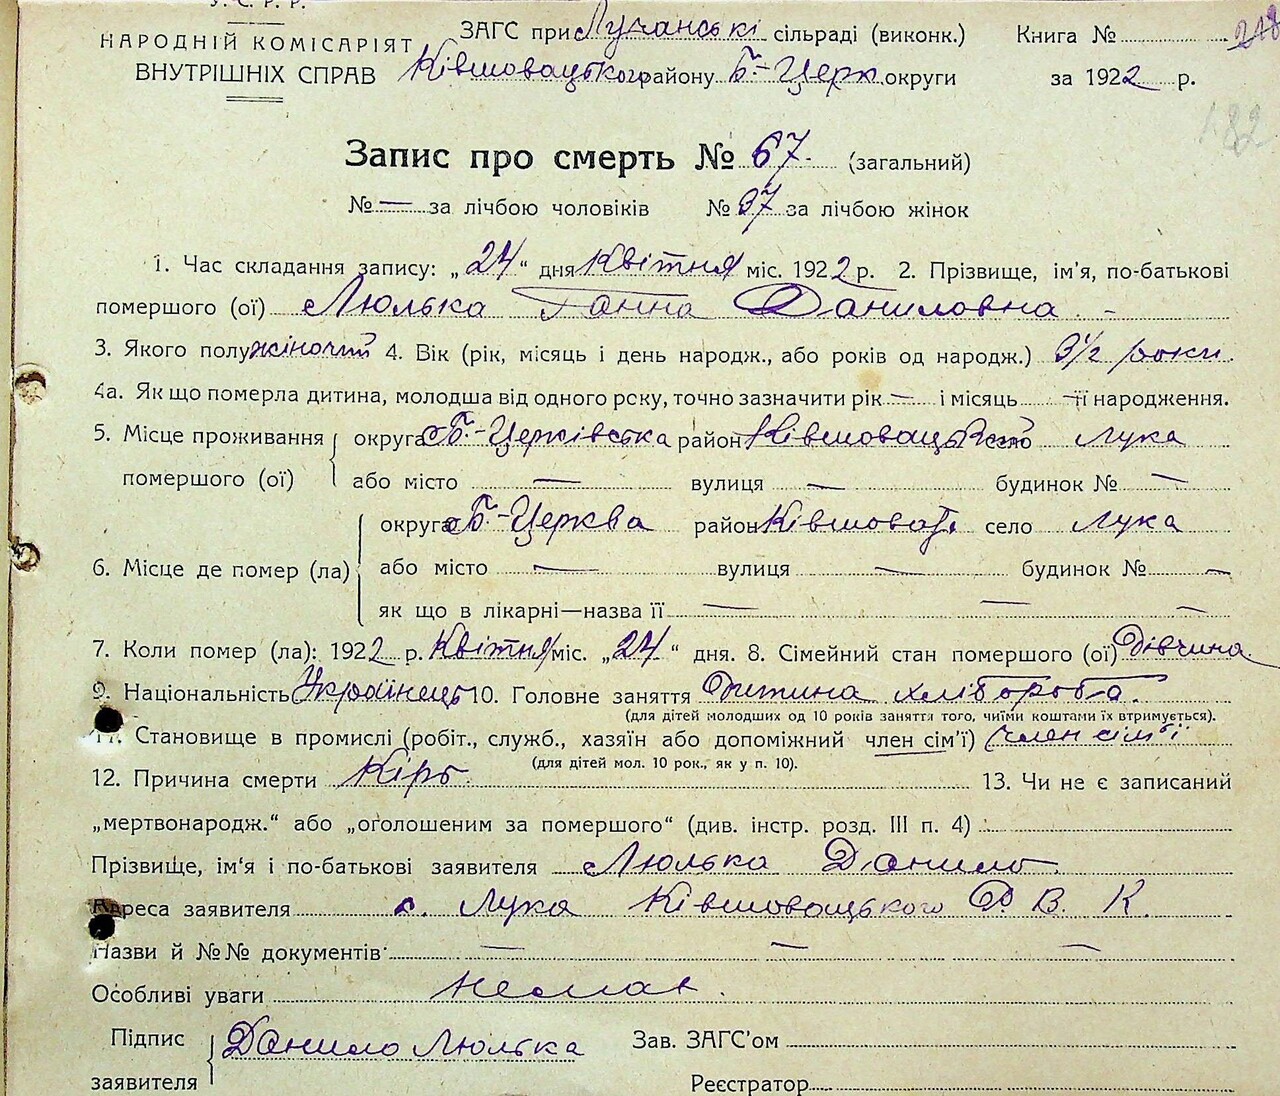 У. С. Р. Р.
НАРОДНІЙ КОМІСАРІЯТ
ВНУТРІШНІХ СПРАВ
ЗАГС при Лучанські сільраді (виконк.) Книга № 218
Ківшовацького району Б.-Церк. округи за 1922 р.
182
Запис про смерть № 67. (загальний)
№ — за лічбою чоловіків № 37 за лічбою жінок
1. Час складання запису: „24“ дня Квітня міс. 1922 р. 2. Прізвище, ім'я, по-батькові
помершого (ої) Люлька Ганна Даниловна. -
3. Якого полу жіночий 4. Вік (рік, місяць і день народж., або років од народж.) 3½ роки.
4а. Як що померла дитина, молодша від одного року, точно зазначити рік — і місяць — її народження.
5. Місце проживання помершого (ої) округа Б.-Церківська район Ківшовацький село Лука
або місто — вулиця — будинок № —
6. Місце де помер (ла) округа Б.-Церква район Ківшоват. село Лука
або місто — вулиця — будинок № —
як що в лікарні—назва її — — —
7. Коли помер (ла): 1922 р. Квітня міс. „24“ дня. 8. Сімейний стан помершого (ої) Дівчина.
9. Національність Українець 10. Головне заняття Дитина хлібороба.
(для дітей молодших од 10 років заняття того, чиїми коштами їх втримується).
11. Становище в промислі (робіт., служб., хазяїн або допоміжний член сім'ї) член сімьї
(для дітей мол. 10 рок., як у п. 10).
12. Причина смерти Кірь. 13. Чи не є записаний
„мертвонародж.“ або „оголошеним за помершого“ (див. інстр. розд. III п. 4)
Прізвище, ім'я і по-батькові заявителя Люлька Данило.
Адреса заявителя с. Лука Ківшовацького Д. В. К.
Назви й №№ документів — — —
Особливі уваги немає.
Підпис заявителя Данило Люлька Зав. ЗАГС'ом
Реєстратор